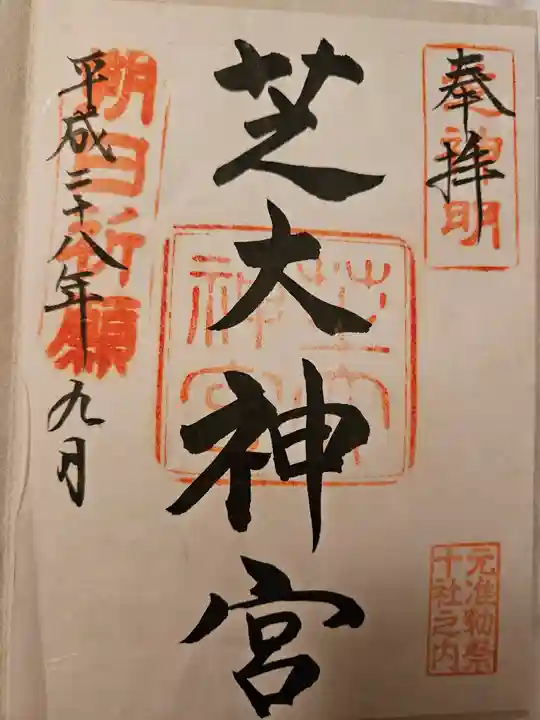 奉拝
芝神明
芝大神宮
芝大神宮
元准勅祭
十社之内
朔日祈願
平成二十八年九月